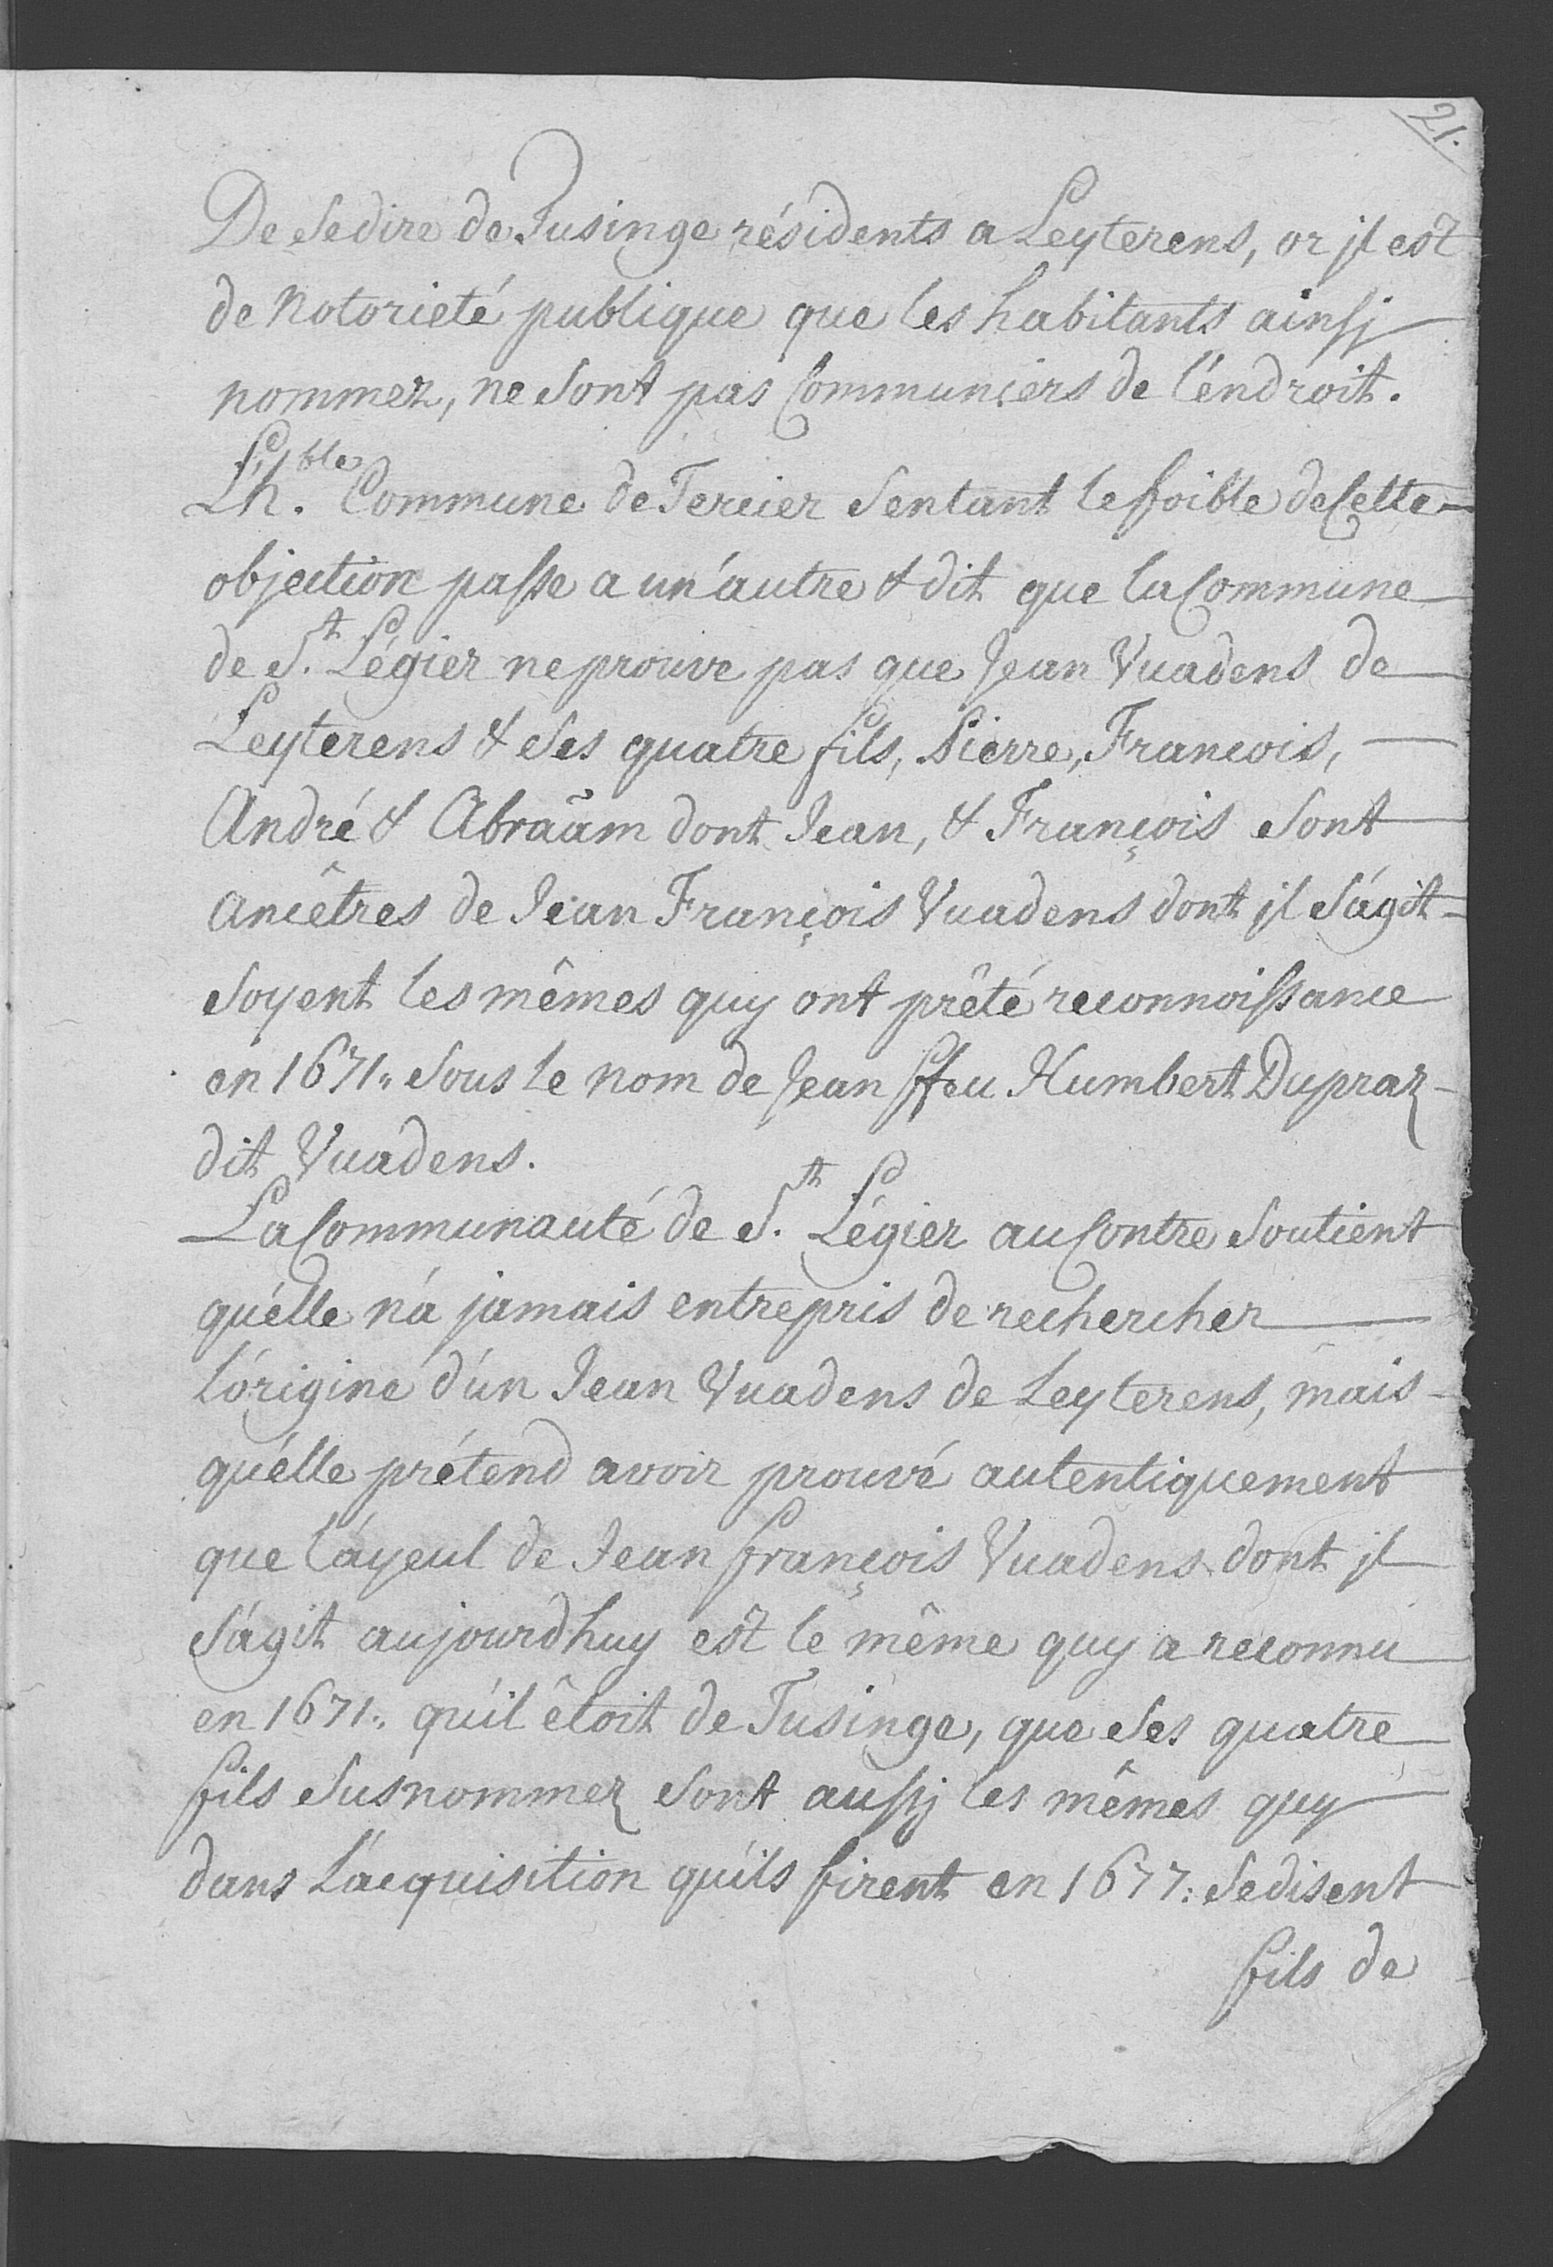 21.
De Se dire de Tusinge résidents a Leyterens, or jl est
de Notorieté publique que les habitants ainsj
nommez, ne Sont pas Communiers de l'éndroit.
L'h.ble Commune de Tercier Sentant le foible de Cette
objection passe a un'autre & dit que la Commune
de St. Légier ne prouve pas que Jean Vuadens de
Leyterens & Ses quatre fils, Pierre, Francois,
André & Abraãm dont Jean, & François Sont
Ancêtres de Jean François Vuadens dont jl S'ágit
Soyent les mêmes quy ont prêté reconnoissance
en 1671. Sous le nom de Jean ffeu Humbert Dupraz
dit Vuadens.
La Communauté de St. Légier au Contre Soutient
qu'élle n'á jamais entrepris de rechercher
l'órigine d'ún Jean Vuadens de Leyterens, mais
qu'élle prétend avoir prouvé autentiquement
que l'áyeul de Jean françois Vuadens dont jl
S'ágit aujourdhuy est le même quy a reconnu
en 1671. qu'il êtoit de Tusinge, que Ses quatre
fils Susnommez Sont aussj les mêmes quy
dans L'ácquisition qu'ils firent en 1677: Se disent
fils de